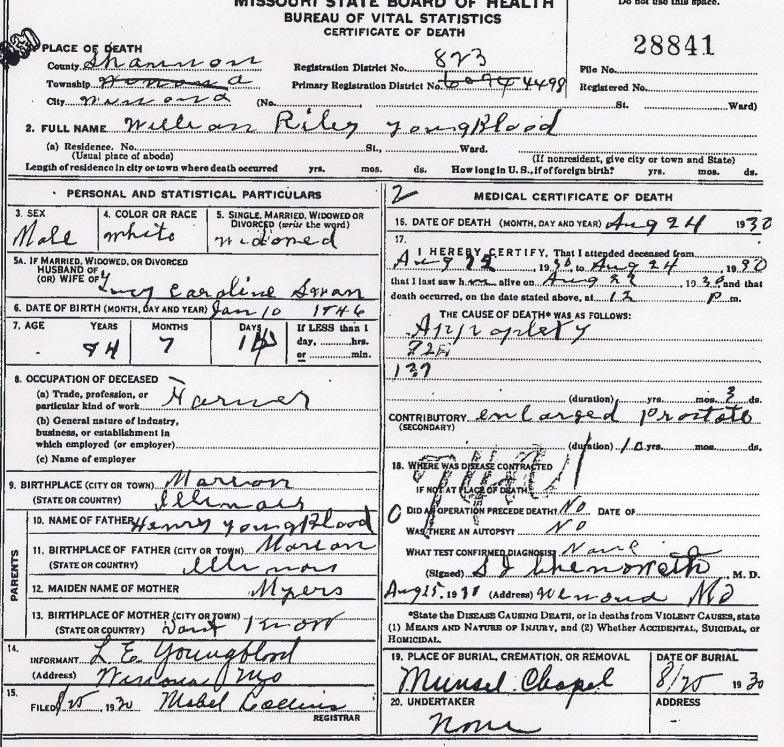 MISSOURI STATE BOARD OF HEALTH
Do not use this space.
BUREAU OF VITAL STATISTICS
CERTIFICATE OF DEATH
28841
PLACE OF DEATH
County Shannon Registration District No. 823 File No.
Township Primary Registration District No. 4498 Registered No.
City Winona (No. St. Ward)
2. FULL NAME William Riley YoungBlood
(a) Residence. No. St., Ward.
(Usual place of abode) (If nonresident, give city or town and State)
Length of residence in city or town where death occurred yrs. mos. ds. How long in U.S., if of foreign birth? yrs. mos. ds.
PERSONAL AND STATISTICAL PARTICULARS
3. SEX
Male
4. COLOR OR RACE
white
5. SINGLE, MARRIED, WIDOWED OR
DIVORCED (write the word)
widowed
5A. IF MARRIED, WIDOWED, OR DIVORCED
HUSBAND OF
(OR) WIFE OF Lucy Caroline Swan
6. DATE OF BIRTH (MONTH, DAY AND YEAR) Jan 10 1846
7. AGE YEARS MONTHS DAYS If LESS than 1
day, hrs.
or min.
84 7 14
8. OCCUPATION OF DECEASED
(a) Trade, profession, or
particular kind of work Farmer
(b) General nature of industry,
business, or establishment in
which employed (or employer)
(c) Name of employer
9. BIRTHPLACE (CITY OR TOWN) Marion
(STATE OR COUNTRY) Illinois
PARENTS
10. NAME OF FATHER Henry YoungBlood
11. BIRTHPLACE OF FATHER (CITY OR TOWN) Marion
(STATE OR COUNTRY) Illinois
12. MAIDEN NAME OF MOTHER Myers
13. BIRTHPLACE OF MOTHER (CITY OR TOWN)
(STATE OR COUNTRY) dont know
14.
INFORMANT L E Youngblood
(Address) Winona Mo
15.
FILED 8/25, 1930 Mabel Collins
REGISTRAR
2 MEDICAL CERTIFICATE OF DEATH
16. DATE OF DEATH (MONTH, DAY AND YEAR) Aug 24 1930
17.
I HEREBY CERTIFY, That I attended deceased from
Aug 22, 1930, to Aug 24, 1930
that I last saw him alive on Aug 22, 1930, and that
death occurred, on the date stated above, at 12 P m.
THE CAUSE OF DEATH* WAS AS FOLLOWS:
Appoplety
137
(duration) yrs. mos. 3 ds.
CONTRIBUTORY enlarged Prostate
(SECONDARY)
(duration) 10 yrs. mos. ds.
18. WHERE WAS DISEASE CONTRACTED
IF NOT AT PLACE OF DEATH
DID AN OPERATION PRECEDE DEATH? No DATE OF
WAS THERE AN AUTOPSY? No
WHAT TEST CONFIRMED DIAGNOSIS? None
(Signed) S J Chenoweth, M. D.
Aug 25, 1930 (Address) Winona Mo
*State the DISEASE CAUSING DEATH, or in deaths from VIOLENT CAUSES, state
(1) MEANS AND NATURE OF INJURY, and (2) Whether ACCIDENTAL, SUICIDAL, or
HOMICIDAL.
19. PLACE OF BURIAL, CREMATION, OR REMOVAL
Munsel Chapel
DATE OF BURIAL
8/25 1930
20. UNDERTAKER
None
ADDRESS
-